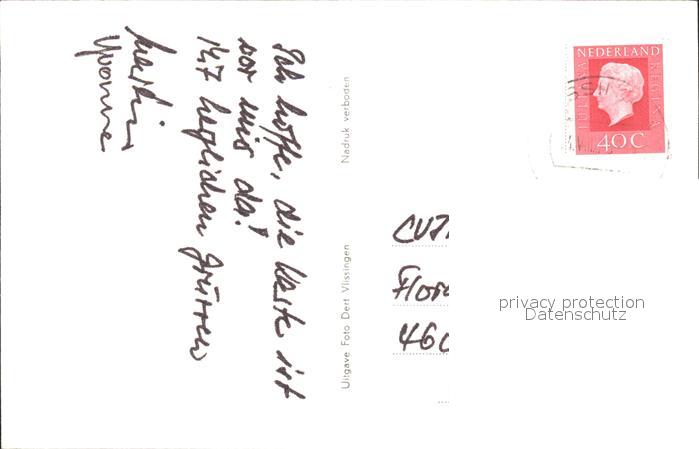 Ich hoffe, die Karte ist
vor mir da!
147 herzlichen Grüssen
Martin
Yvonne
Nadruk verboden
Uitgave Foto Dert Vlissingen
NEDERLAND
JULIANA REGINA
40 C
CVJ
Flor
460
privacy protection
Datenschutz